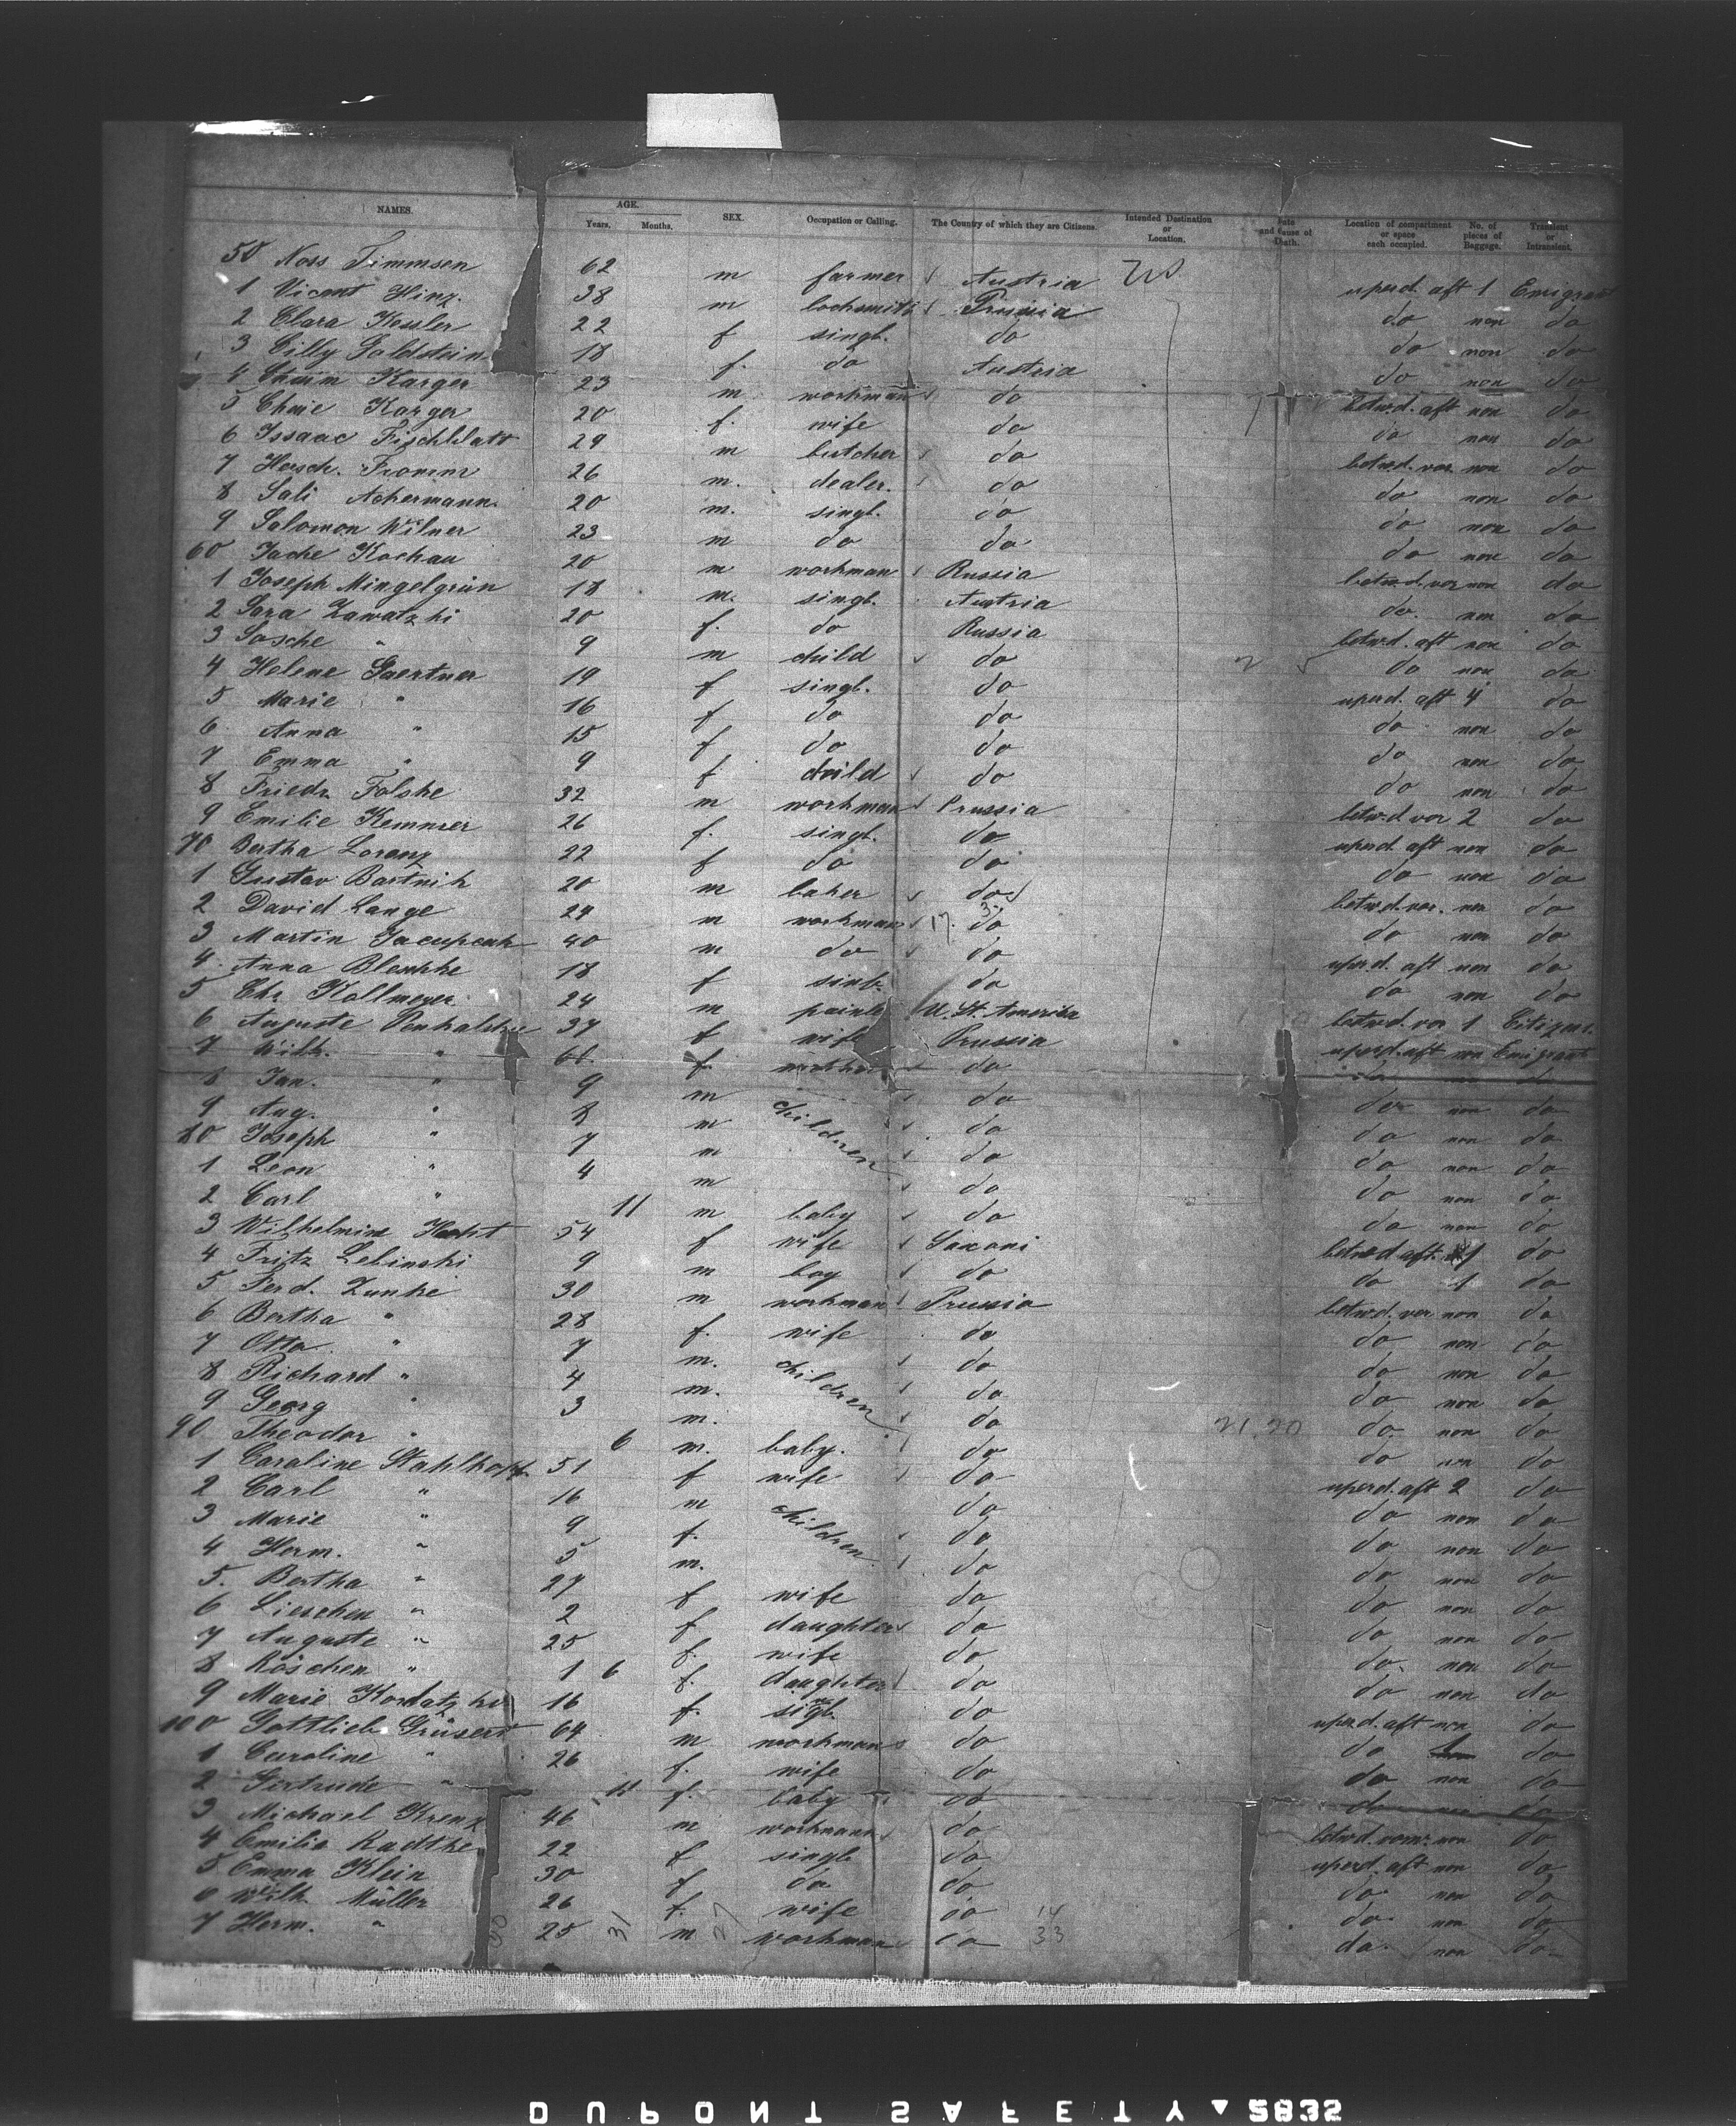 NAMES. AGE. Years. Months. SEX. Occupation or Calling. The Country of which they are Citizens. Intended Destination or Location. Date and Cause of Death. Location of compartment or space each occupied. No. of pieces of Baggage. Transient or Intransient.
50 Noss Timmsen 62 m farmer Austria US uperd. aft 1 Emigrant
1 Vicent Hinz. 38 m locksmith Prussia do non do
2 Clara Kessler 22 f singl. do do non do
3 Cilly Goldstein 18 f. do Austria do non do
4 Karger 23 m workman do betwd. aft non do
5 Chaie Karger 20 f. wife do do non do
6 Issaac Fischblatt 29 m butcher do betwd. vor non do
7 Hersch. Fromm 26 m. dealer. do do non do
8 Sali Achermann 20 m. singl. do do non do
9 Salomon Wilner 23 m do do do non do
60 Jache Kochau 20 m workman Russia betwd. vor non do
1 Joseph Mingelgrün 18 m. singl. Austria do. non do
2 Sara Zawatzki 20 f. do Russia betwd. aft non do
3 Sosche " 9 m child do do non do
4 Helene Gaertner 19 f singl. do uperd. aft 4 do
5 Marie " 16 f do do do non do
6 Anna " 15 f do do do non do
7 Emma " 9 f child do do non do
8 Friedr. Folske 32 m workman Prussia betwd vor 2 do
9 Emilie Kemmer 26 f. singl. do uperd. aft non do
70 Bertha Lorenz 22 f do do do non do
1 Gustav Bartnik 20 m baker do betwd. vor. non do
2 David Lange 24 m workman do do non do
3 Martin 40 m do do uperd. aft non do
4 Anna Bleschke 18 f singl. do do non do
5 Chr. Kollmeyer 24 m painter U. St. America betwd. vor 1 Citizens.
6 Auguste 37 f wife Prussia uperd. aft non Emigrant
7 Wilh. " 61 f. mother do do non do
8 Jan. " 9 m do do non do
9 Aug. " 8 m children do do non do
80 Joseph " 7 m do do non do
1 Leon " 4 m do do non do
2 Carl " 11 m baby do do non do
3 Wilhelmine Hecht 54 f wife Saxoni betwd aft. 1 do
4 Fritz Lebinski 9 m boy do do 1 do
5 Ferd. Zunke 30 m workman Prussia betwd. vor non do
6 Bertha " 28 f. wife do do non do
7 Otto " 7 m. do do non do
8 Richard " 4 m. children do do non do
9 Georg " 3 m. do do non do
90 Theodor " 6 m. baby. do do non do
1 Caroline Stahlkopf 51 f wife do uperd. aft 2 do
2 Carl " 16 m do do non do
3 Marie " 9 f. children do do non do
4 Herm. " 5 m. do do non do
5. Bertha " 27 f wife do do non do
6 Lieschen " 2 f daughter do do non do
7 Auguste " 25 f. wife do do non do
8 Röschen " 1 6 f. daughter do do non do
9 Marie 16 f. singl. do uperd. aft non do
100 Gottlieb Grüsert 64 m workman do do 1 do
1 Caroline " 26 f. wife do do non do
2 Gertrude " 11 f. baby do do non do
3 Michael Krenz 46 m workman do betwd. non do
4 Emilie Radtke 22 f singl. do uperd. aft non do
5 Emma Klein 30 f do do do non do
6 Wilh. Müller 26 f. wife do do non do
7 Herm. " 25 m workman do do. non do
21.20
31 27 14 33
DUPONT SAFETY 5835